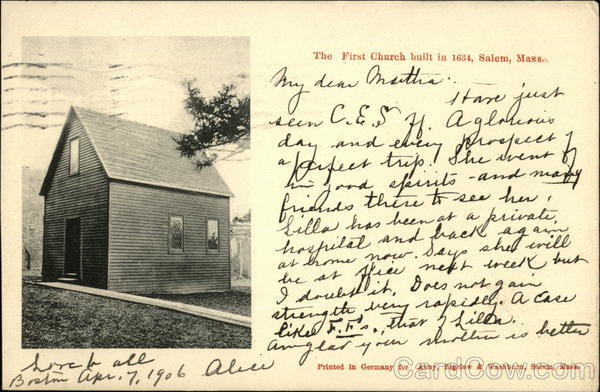 The First Church built in 1634, Salem, Mass.
My dear Martha:
Have just
seen C. E. S. off. A glorious
day and every prospect of
a perfect trip. She went off
in good spirits - and many
friends there to see her.
Lilla has been at a private
hospital and back again
at home now. Says she will
be at office next week but
I doubt it. Does not gain
strength very rapidly. A case
like F. F's, that of Lilla.
Am glad your mother is better
Love to all
Boston Apr. 7, 1906 Alice
Printed in Germany for Almy, Bigelow & Washburn, Salem, Mass.
CardCow.com